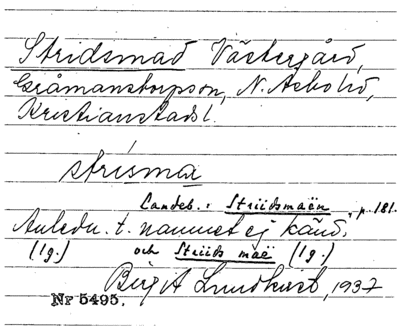 Stridsmad Västergård,
Gråmanstorpssn, N. Åsbo hd,
Kristianstads l.
strismɑ
Landeb.: Striidsmaën, p. 181.
Anledn. t. namnet ej känd.
(lg.) och Striids maë (lg.)
Birg A Lundkvist, 1937
Nr 5495.